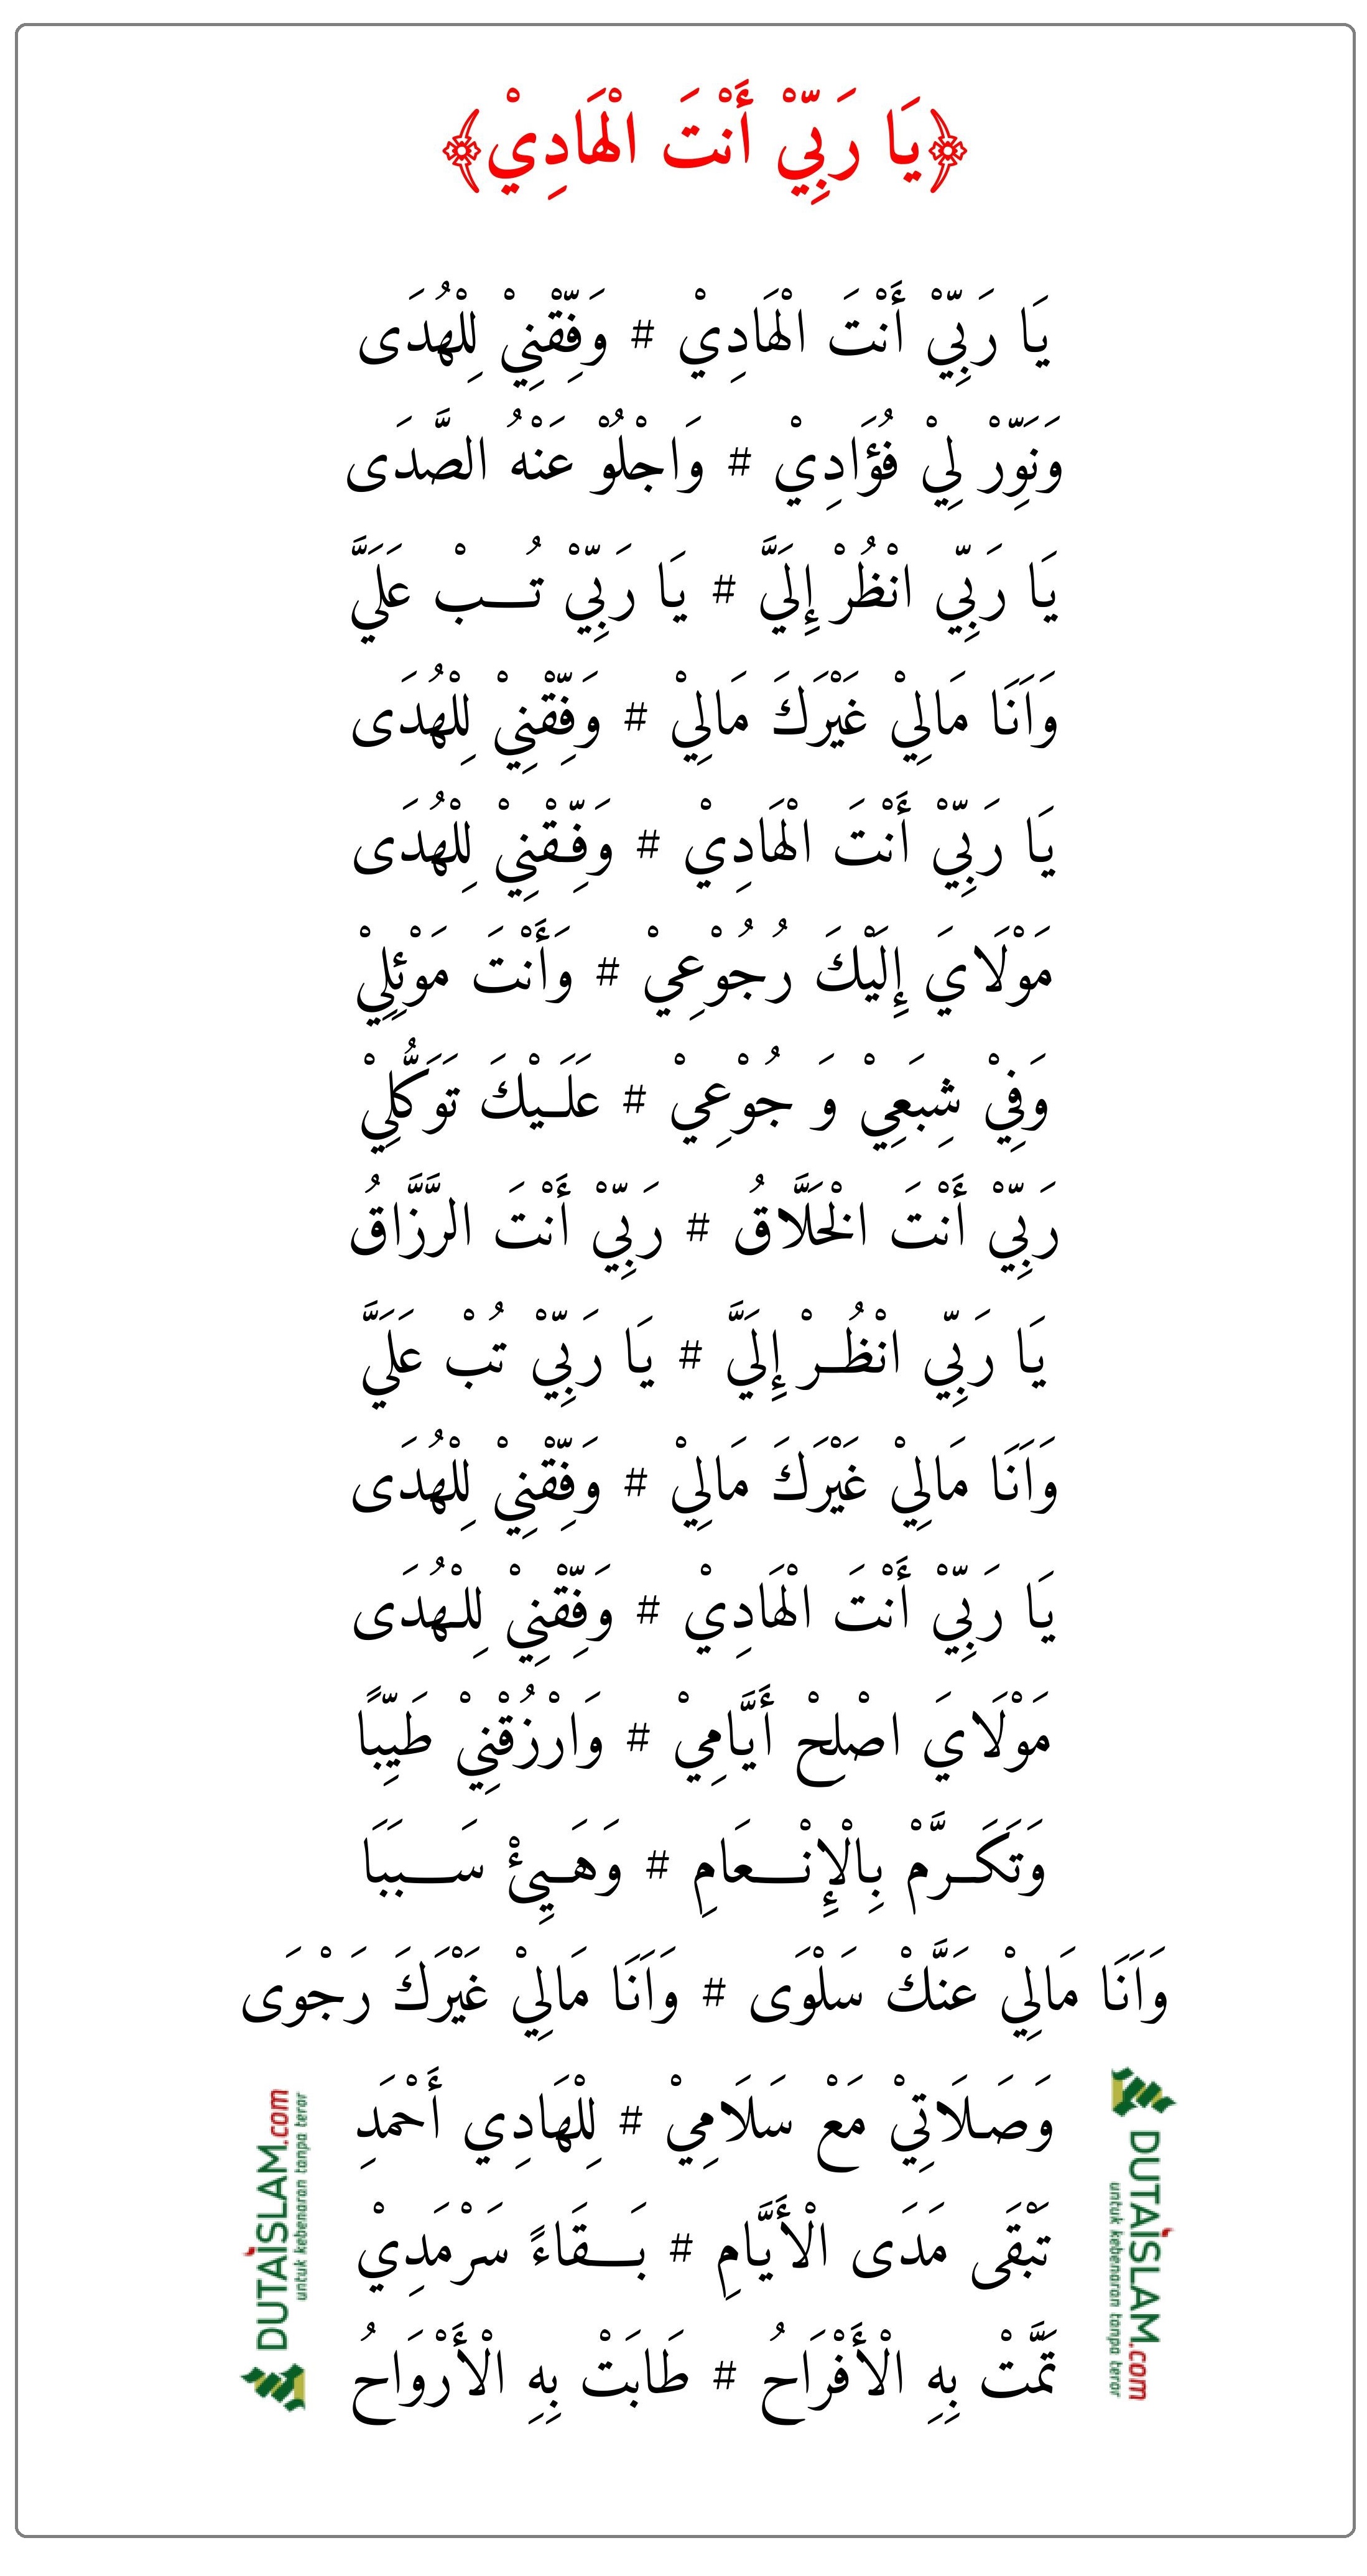 ﴿يَا رَبِّيْ أَنْتَ الْهَادِيْ﴾
يَا رَبِّيْ أَنْتَ الْهَادِيْ # وَفِّقْنِيْ لِلْهُدَى
وَنَوِّرْ لِيْ فُؤَادِيْ # وَاجْلُوْ عَنْهُ الصَّدَى
يَا رَبِّي انْظُرْ إِلَيَّ # يَا رَبِّيْ تُـــبْ عَلَيَّ
وَاَنَا مَالِيْ غَيْرَكَ مَالِيْ # وَفِّقْنِيْ لِلْهُدَى
يَا رَبِّيْ أَنْتَ الْهَادِيْ # وَفِّـقْنِيْ لِلْهُدَى
مَوْلَايَ إِلَيْكَ رُجُوْعِيْ # وَأَنْتَ مَوْئِلِيْ
وَفِيْ شِبَعِيْ وَ جُوْعِيْ # عَلَـيْكَ تَوَكُّلِيْ
رَبِّيْ أَنْتَ الْخَلَّاقُ # رَبِّيْ أَنْتَ الرَّزَّاقُ
يَا رَبِّي انْظُـرْ إِلَيَّ # يَا رَبِّيْ تُبْ عَلَيَّ
وَاَنَا مَالِيْ غَيْرَكَ مَالِيْ # وَفِّقْنِيْ لِلْهُدَى
يَا رَبِّيْ أَنْتَ الْهَادِيْ # وَفِّقْنِيْ لِلْـهُدَى
مَوْلَايَ اصْلِحْ أَيَّامِيْ # وَارْزُقْنِيْ طَيِّبًا
وَتَكَـرَّمْ بِالْإِنْـــعَامِ # وَهَـيِئْ سَـــبَبَا
وَاَنَا مَالِيْ عَنَّكْ سَلْوَى # وَاَنَا مَالِيْ غَيْرَكَ رَجْوَى
وَصَـلَاتِيْ مَعْ سَلَامِيْ # لِلْهَادِي أَحْمَدِ
تَبْقَى مَدَى الْأَيَّامِ # بَـــقَاءً سَرْمَدِيْ
تَمَّتْ بِهِ الْأَفْرَاحُ # طَابَتْ بِهِ الْأَرْوَاحُ
DUTAISLAM.com
untuk kebenaran tanpa teror
DUTAISLAM.com
untuk kebenaran tanpa teror